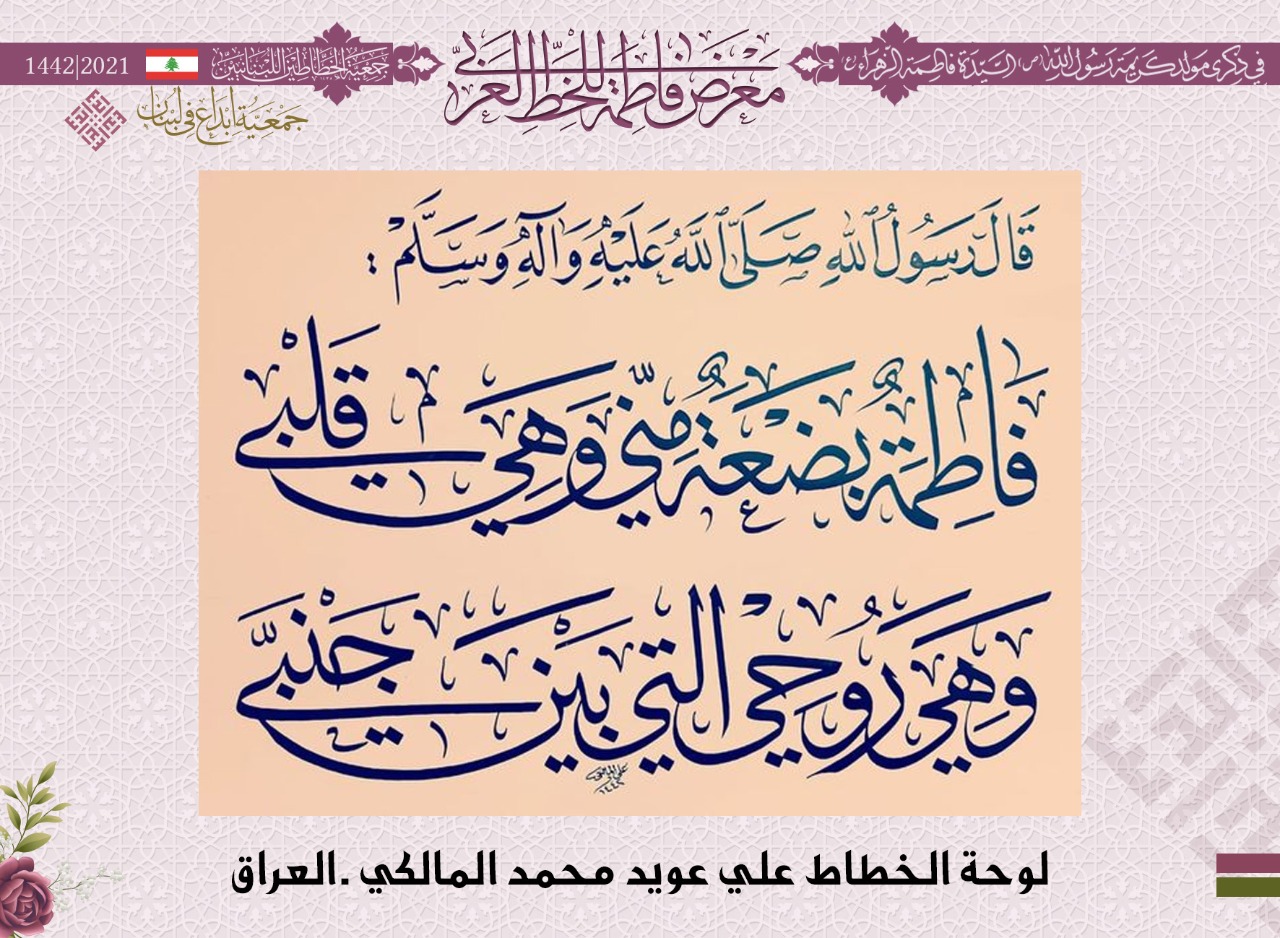 في ذكرى مولد كريمة رسول الله (ص) السيدة فاطمة الزهراء (ع)
معرض فاطمة للخط العربي
جمعية الخطاطين اللبنانيين
1442|2021
جمعية إبداع في لبنان
قَالَ رَسُولُ ٱللهِ صَلَّى ٱللَّهُ عَلَيْهِ وَآلِهِ وَسَلَّمَ :
فَاطِمَةُ بَضْعَةٌ مِنِّي وَهِيَ قَلْبِي
وَهِيَ رُوحِيَ الَّتِي بَيْنَ جَنْبَيَّ
لوحة الخطاط علي عويد محمد المالكي .العراق